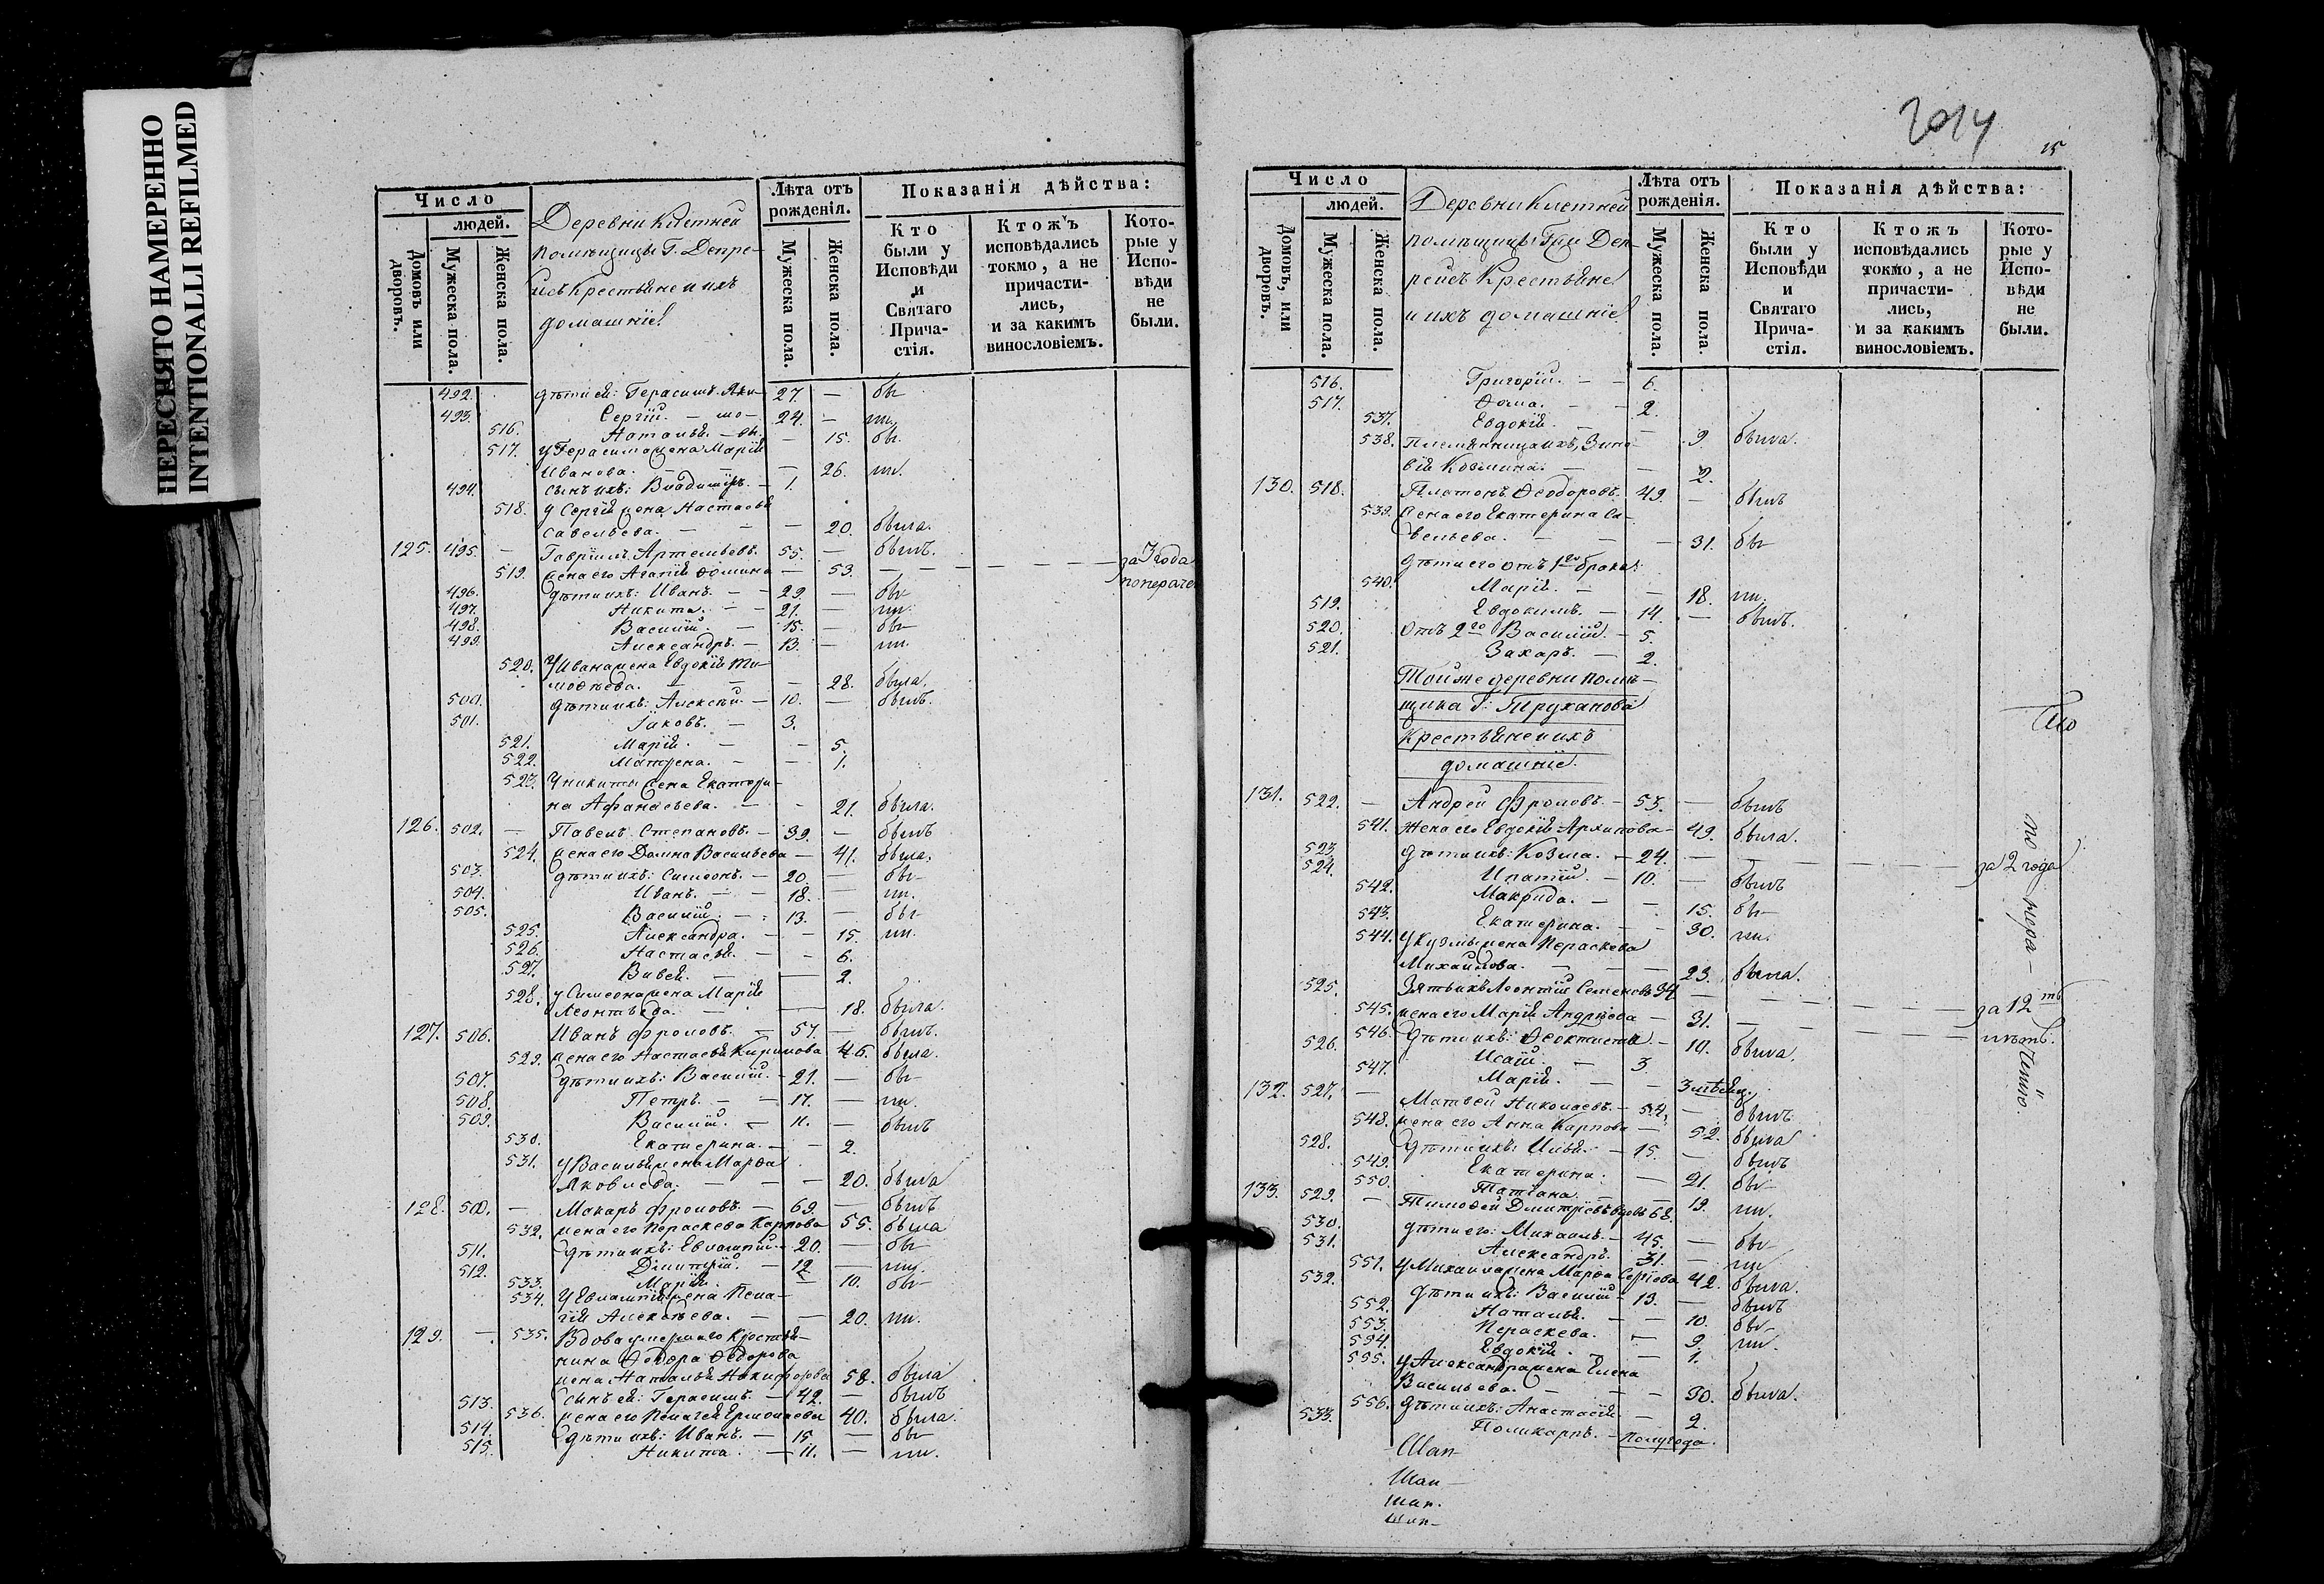 НЕРЕСНЯТО НАМЕРЕННО
INTENTIONALLI REFILMED
Число
людей.
Домовъ или дворовъ.
Мужеска пола.
Женска пола.
Деревни Клетней
помѣщицы Г. Депре-
крестьяне и ихъ
домашніе
Лѣта отъ рожденія.
Мужеска пола.
Женска пола.
Показанія дѣйства:
Кто были у Исповѣди и Святаго Прича-стія.
Ктожъ исповѣдались токмо, а не причасти-лись, и за какимъ винословіемъ.
Кото-рые у Испо-вѣди не были.
492. дѣти ей: Герасимъ 27. — бы-
493. Сергій. — 24. —
516. Наталья. — 15. бы-
517. у Герасима жена Марія
Иванова. — 26.
494. сынъ ихъ: Владиміръ. — 1.
518. у Сергія жена Настасья
Савельева. — — — 20. была.
125. 495. — Гавріилъ Артемьевъ. 55. — былъ.
519. жена его Агафія Ѳомина — 53. — — — — за 3 года
496. дѣти ихъ: Иванъ. — — 29. — бы-
497. Никита. — — 21. — ли.
498. Василій. — 15. — бы-
499. Александръ. — 13. — ли.
520. У Ивана жена Евдокія Ти-
моѳеева. — — — 28. была.
500. дѣти ихъ: Алексѣй. — 10. — былъ.
501. Іаковъ. — 3.
521. Марія. — — 5.
522. Матрена. — — 1.
523. У Никиты жена Екатери-
на Афанасьева. — - 21. была.
126. 502. — Павелъ Степановъ. — 39. — былъ
524. жена его Домна Васильева — 41. была.
503. дѣти ихъ: Симеонъ. — 20. — бы-
504. Иванъ. — — 18. — ли.
505. Василій. — 13. — бы-
525. Александра. — — 15. ли.
526. Настасья. — - 6.
527. — — 2.
528. у Симеона жена Марія
Леонтьева. — — 18. была.
127. 506. Иванъ Фроловъ. — 57. — былъ.
529. жена его Настасья Кирилова 46. была.
507. дѣти ихъ: Василій. — 21. — бы-
508. Петръ. — — 17. — ли.
509. Василій. — 11. — былъ
530. Екатерина. — — 2.
531. у Василья жена Марѳа
Яковлева. — — — 20. была
128. — Макаръ Фроловъ. — 69. — былъ
532. жена его Пераскева Карпова 55. была
511. дѣти ихъ: Евлампій. — 20. — бы-
512. Димитрій. — 12 — ли.
533. Марія. — 10. бы-
534. У Евлампія жена Пела-
гія Алексѣева. — — 20. ли.
129. — 535. Вдова умершаго крестья-
нина Ѳедора Ѳедорова
жена Наталья Никифорова 58. была
513. сынъ ей: Герасимъ. — 42. — былъ
536. жена его Пелагея Ермолаева 40. была.
514. дѣти ихъ: Иванъ. — 15. — бы-
515. Никита. — 11. — ли.
2014
15
Число
людей.
Домовъ, или дворовъ.
Мужеска пола.
Женска пола.
Деревни Клетней
помѣщицы Г-жи Деп-
рейсъ крестьяне
и ихъ домашніе
Лѣта отъ рожденія.
Мужеска пола.
Женска пола.
Показанія дѣйства:
Кто были у Исповѣди и Святаго Прича-стія.
Ктожъ исповѣдались токмо, а не причасти-лись, и за какимъ винословіемъ.
Кото-рые у Испо-вѣди не были.
516. Григорій. — — 6.
517. Ѳома. — — 2.
537. Евдокія. — — 9 была.
538. Племянница ихъ, Зино-
вія Козмина. — — 2.
130. 518. Платонъ Ѳеодоровъ. 49. — былъ
539. жена его Екатерина Са-
вельева. — — — 31. бы-
дѣти его отъ 1го брака:
540. Марія. — — 18. ли.
519. Евдокимъ. — 14. — былъ.
520. Отъ 2го Василій. — 5.
521. Захаръ. — 2.
Той же деревни помѣ-
щика Г: Труханова
крестьяне и ихъ
домашніе.
131. 522. — Андрей Фроловъ. — 53. — былъ
541. Жена его Евдокія Архипова — 49. была.
523 дѣти ихъ: Козма. — 24. — — — — за 2 года
524. Ипатій. — 10. — былъ
542. Макрида. — — 15. бы-
543. Екатерина. — 30. ли.
544. У Кузмы жена Пераскева
Михайлова. — — — 23. была.
525. Зять ихъ Леонтій Семеновъ 34 — — — — за 12ть
545. жена его Марія Андреева — 31. — — — лѣтъ.
546. дѣти ихъ: Ѳеоктиста — 10. была.
526. Исаія. — 3.
547. Марія. — — 3 мѣсяц.
132. 527. — Матвей Николаевъ. — 54. — былъ
548. жена его Анна Карпова — 52. была
528. дѣти ихъ: Илья. — 15. — былъ
549. Екатерина. — 21. бы-
550. Татіана. — — 19. ли.
133. 529. — Тимоѳей Дмитріевъ вдовъ 68.
530. дѣти его: Михаилъ. — 45. — бы-
531. Александръ. 31. — ли
551. у Михаила жена Марѳа Сергіева 42. была.
532. дѣти ихъ: Василій — 13. — былъ
552. Наталья. — — 10. бы-
553. Пераскева. — 9. ли.
554. Евдокія. — — 1.
555. у Александра жена Елена
Васильева. — — — 30. была.
556. дѣти ихъ: Анастасія. — 2.
533. Поликарпъ. — полугода.